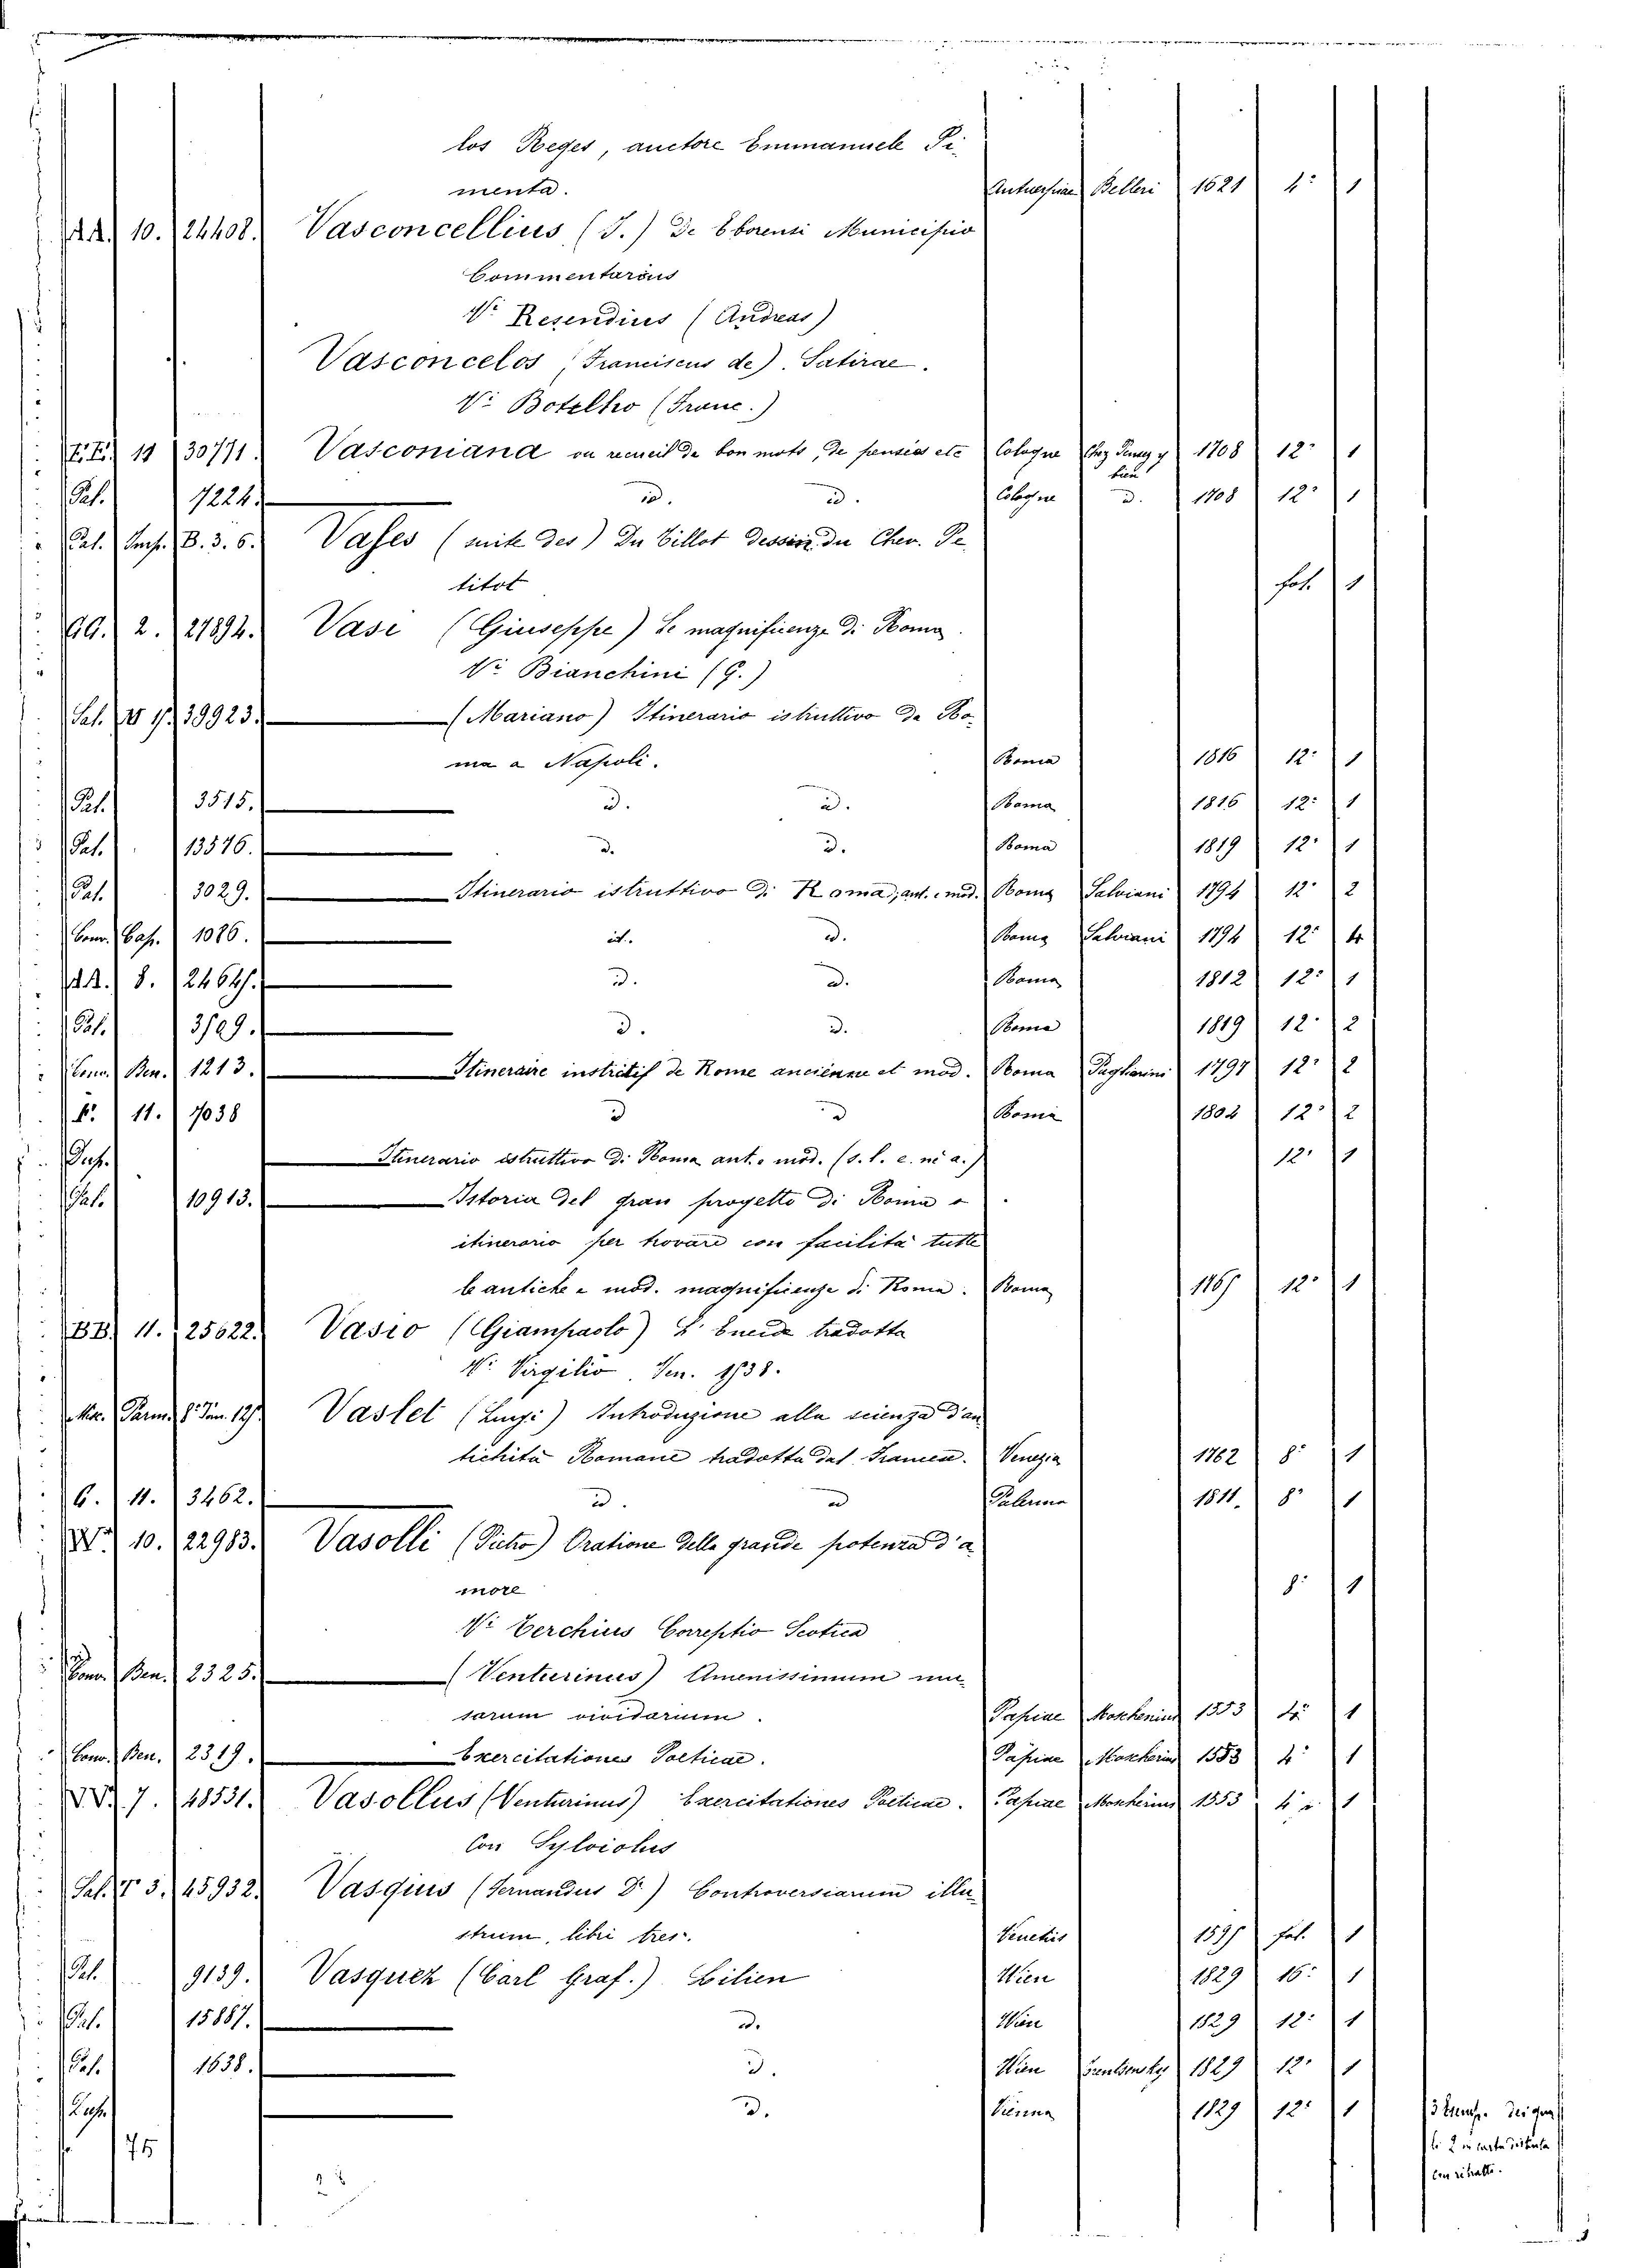 los Reges, auctore Emmanuele Pi-
menta. Antuerpiae Belleri 1621 4º 1
AA. 10. 24408. Vasconcellius (J.) De Eborensi Municipio
Commentarius
Vi Resendius (Andreas)
Vasconcelos (Franciscus de). Satirae.
Vi Botelho (Franc.)
11 30771. Vasconiana ou recueil de bon mots, de pensées etc Cologne Chez 1708 12º 1
Pal. 7224. id. id. Cologne id. 1708 12º 1
Pal. B. 3. 6. Vases (suite des) Du Billot dessin du Chev. Pe-
titot fol. 1
2. 27894. Vasi (Giuseppe) Le magnificenze di Roma.
Vi Bianchini (G.)
39923. (Mariano) Itinerario istruttivo da Ro-
ma a Napoli. Roma 1816 12º 1
Pal. 3515. id. id. Roma 1816 12º 1
Pal. 13576. id. id. Roma 1819 12º 1
Pal. 3029. Itinerario istruttivo di Roma, ant. e mod. Roma Salvioni 1794 12º 2
Conv. Cap. 1086. id. id. Roma Salvioni 1794 12º 4
AA. 8. 24647. id. id. Roma 1812 12º 1
Pal. 3709. id. id. Roma 1819 12º 2
Conv. Ben. 1213. Itineraire instrutif de Rome ancienne et mod. Roma Pagliarini 1797 12º 2
11. 7038 id id Roma 1804 12º 2
Itinerario istruttivo di Roma ant. e mod. (s. l. e. ne a.) 12º 1
Pal. 10913. Istoria del gran progetto di Roma o
itinerario per trovare con facilità tutte
le antiche e mod. magnificenze di Roma. Roma 1767 12º 1
BB. 11. 25622. Vasio (Giampaolo) L'Eneide tradotta
Vi Virgilio. Ven. 1738.
Mis. Parm. 8º Tom. 127 Vaslet (Luigi) Introduzione alla scienza d'an-
tichità Romane tradotta dal Francese. Venezia 1762 8º 1
6. 11. 3462. id. id Palermo 1811. 8º 1
10. 22983. Vasolli (Pietro) Oratione delle grande potenza d'a-
more 8º 1
Vi Cerchius Correptio Scotica
Conv. Ben. 2325. (Venturinus) Amenissimum mu-
sarum viridarium. Papiae Moschenius 1553 4º 1
Conv. Ben. 2319. Exercitationes Poeticae. Papiae Moschenius 1553 4º 1
7. 48531. Vasollus (Venturinus) Exercitationes Poeticae. Papiae Moschenius 1553 4º 1
Con Sylviolus
3. 45932. Vasqius (Fernandus D.) Controversiarum illu-
strium, libri tres. Venetiis 1595 fol. 1
Pal. 9139. Vasquez (Carl Graf.) Bilien Wien 1829 16º 1
Pal. 15887. id. Wien 1829 12º 1
Pal. 1638. id. Wien 1829 12º 1
id. Vienna 1829 12º 1
3 Esemp. dei qua-
li 2 in carta distinta
con ritratto.
75